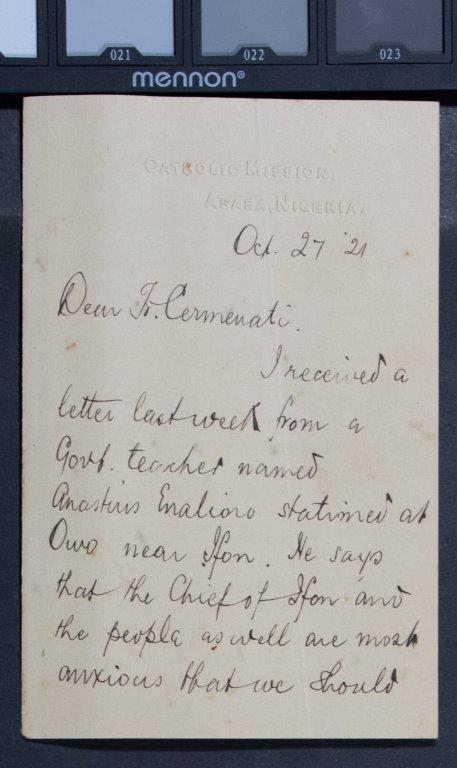 021 022 023
mennon®
CATHOLIC MISSION,
ASABA, NIGERIA.
Oct. 27 '21
Dear Fr. Cermenati.
I received a
letter last week from a
Govt. teacher named
Anastius Enalioro stationed at
Owo near Ifon. He says
that the Chief of Ifon and
the people as well are most
anxious that we should